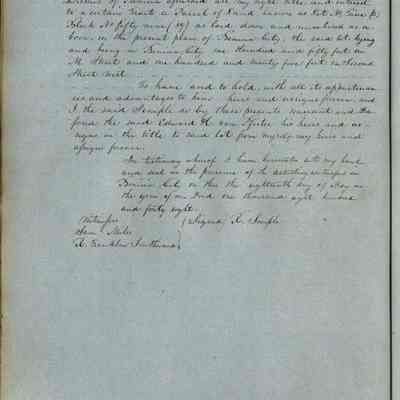 all my right title and interest
to a certain Tract or Parcel of Land known as Lot No
Block No fifty nine (59) as laid down and numbered as a-
bove, in the present plan of Benicia City, the said lot lying
and being in Benicia City one Hundred and fifty feet on
M Street and one hundred and twenty five feet on Second
Street West.
To have and to hold, with all its appurtenan
ces and advantages to him heirs and assigns forever, and
I the said Semple do by these presents warrant and de
fend the said Edward H. von his heirs and as-
signs in the title to said lot from myself my heirs and
assigns forever.
In testimony whereof I have hereunto set my hand
and seal in the presence of the attesting witnesses in
Benicia City on this the eighteenth day of May in
the year of our Lord one thousand eight hundred
and forty eight.
Witnesses (Signed) R. Semple